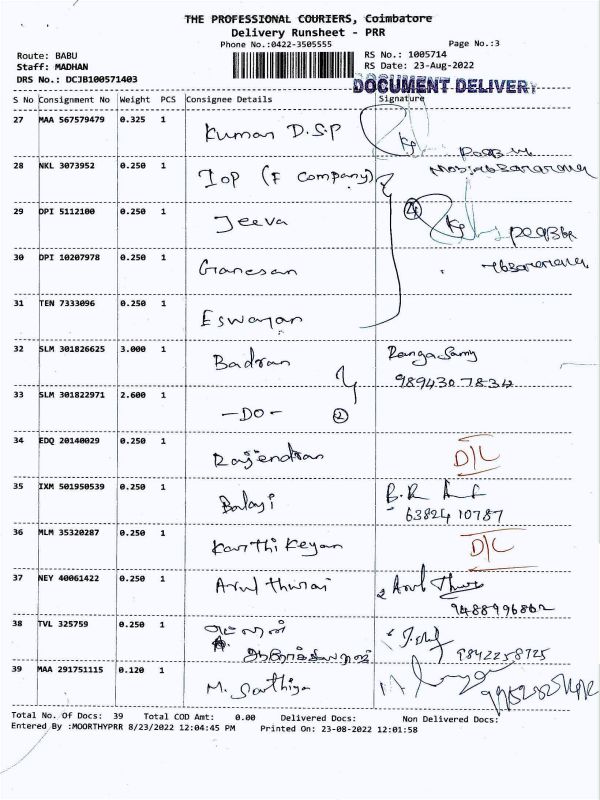 THE PROFESSIONAL COURIERS, Coimbatore
Delivery Runsheet - PRR
Phone No.:0422-3505555
Page No.:3
Route: BABU
RS No.: 1005714
Staff: MADHAN
RS Date: 23-Aug-2022
DRS No.: DCJB100571403
DOCUMENT DELIVERY
S No Consignment No Weight PCS Consignee Details Signature
27 MAA 567579479 0.325 1 Kumar D.S.P
28 NKL 3073952 0.250 1 Top (F Company)
29 DPI 5112100 0.250 1 Jeeva 4
30 DPI 10207978 0.250 1 Ganesan
31 TEN 7333096 0.250 1 Eswaran
32 SLM 301826625 3.000 1 Badran Ranga Samy
98943 07834
33 SLM 301822971 2.600 1 -DO- 2
34 EDQ 20140029 0.250 1 Rajendran D/L
35 IXM 501950539 0.250 1 Balaji B.R
63824 10787
36 MLM 35320287 0.250 1 Karthikeyan D/L
37 NEY 40061422 0.250 1 Arul thurai Arul Thurai
9488996862
38 TVL 325759 0.250 1
9842258725
39 MAA 291751115 0.120 1 M. Sarthiya
Total No. Of Docs: 39 Total COD Amt: 0.00 Delivered Docs: Non Delivered Docs:
Entered By :MOORTHYPRR 8/23/2022 12:04:45 PM Printed On: 23-08-2022 12:01:58